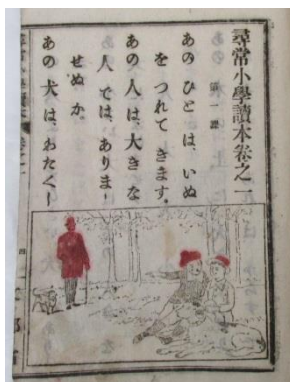 尋常小學讀本卷之一
第一課
あのひとは、いぬ
をつれてきます。
あの人は、大きな
人では、ありま
せぬか。
あの犬は、わたくし